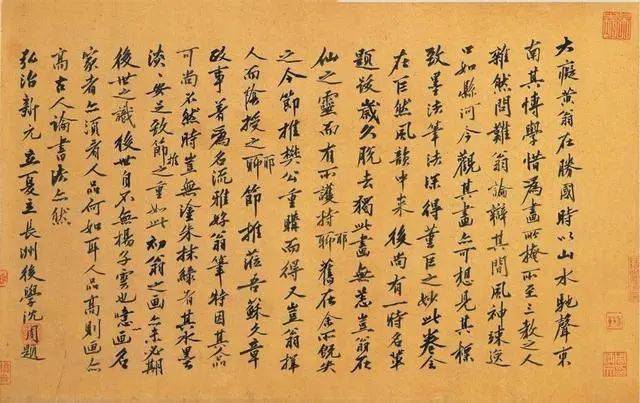 大癡黃翁在勝國時以山水馳聲東
南其博學惜為畫所掩所至三教之人
雜然問難翁論辯其間風神竦逸
口如縣河今觀其畫亦可想見其標
致墨法筆法深得董巨之妙此卷全
在巨然風韻中来後尚有一時名筆
題跋歲久脫去獨此畫無恙豈翁在
仙之靈而有所護持耶舊在余所既失
之今節推樊公重購而得又豈翁擇
人而陰授之耶節推蒞吾蘇文章
政事著為名流雅好翁筆特因其人品
可尚不然時豈無塗朱抹綠者其水墨
淡淡安足致節推之重如此初翁之画亦未必期
後世之識後世自不無楊子雲也噫畫名
家者亦須看人品何如耳人品高則画亦
高古人論書法亦然
弘治新元立夏長洲後學沈周題